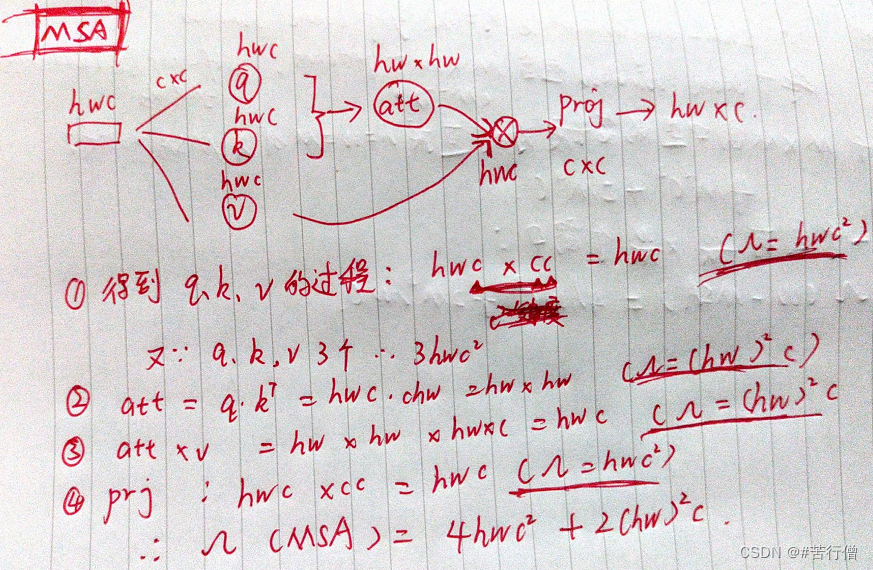 MSA
hwc
c×c
hwc
q
hwc
k
hwc
v
hw×hw
att
hwc
proj → hw×c.
c×c
① 得到 q、k、v 的过程: hwc × cc = hwc (Ω=hwc²)
又∵ q、k、v 3个 ∴ 3hwc²
② att = q·kᵀ = hwc·chw = hw×hw (Ω=(hw)²c)
③ att×v = hw×hw×hw×c = hwc (Ω=(hw)²c
④ prj : hwc×cc = hwc (Ω=hwc²)
∴ Ω(MSA) = 4hwc² + 2(hw)²c.
CSDN @#苦行僧